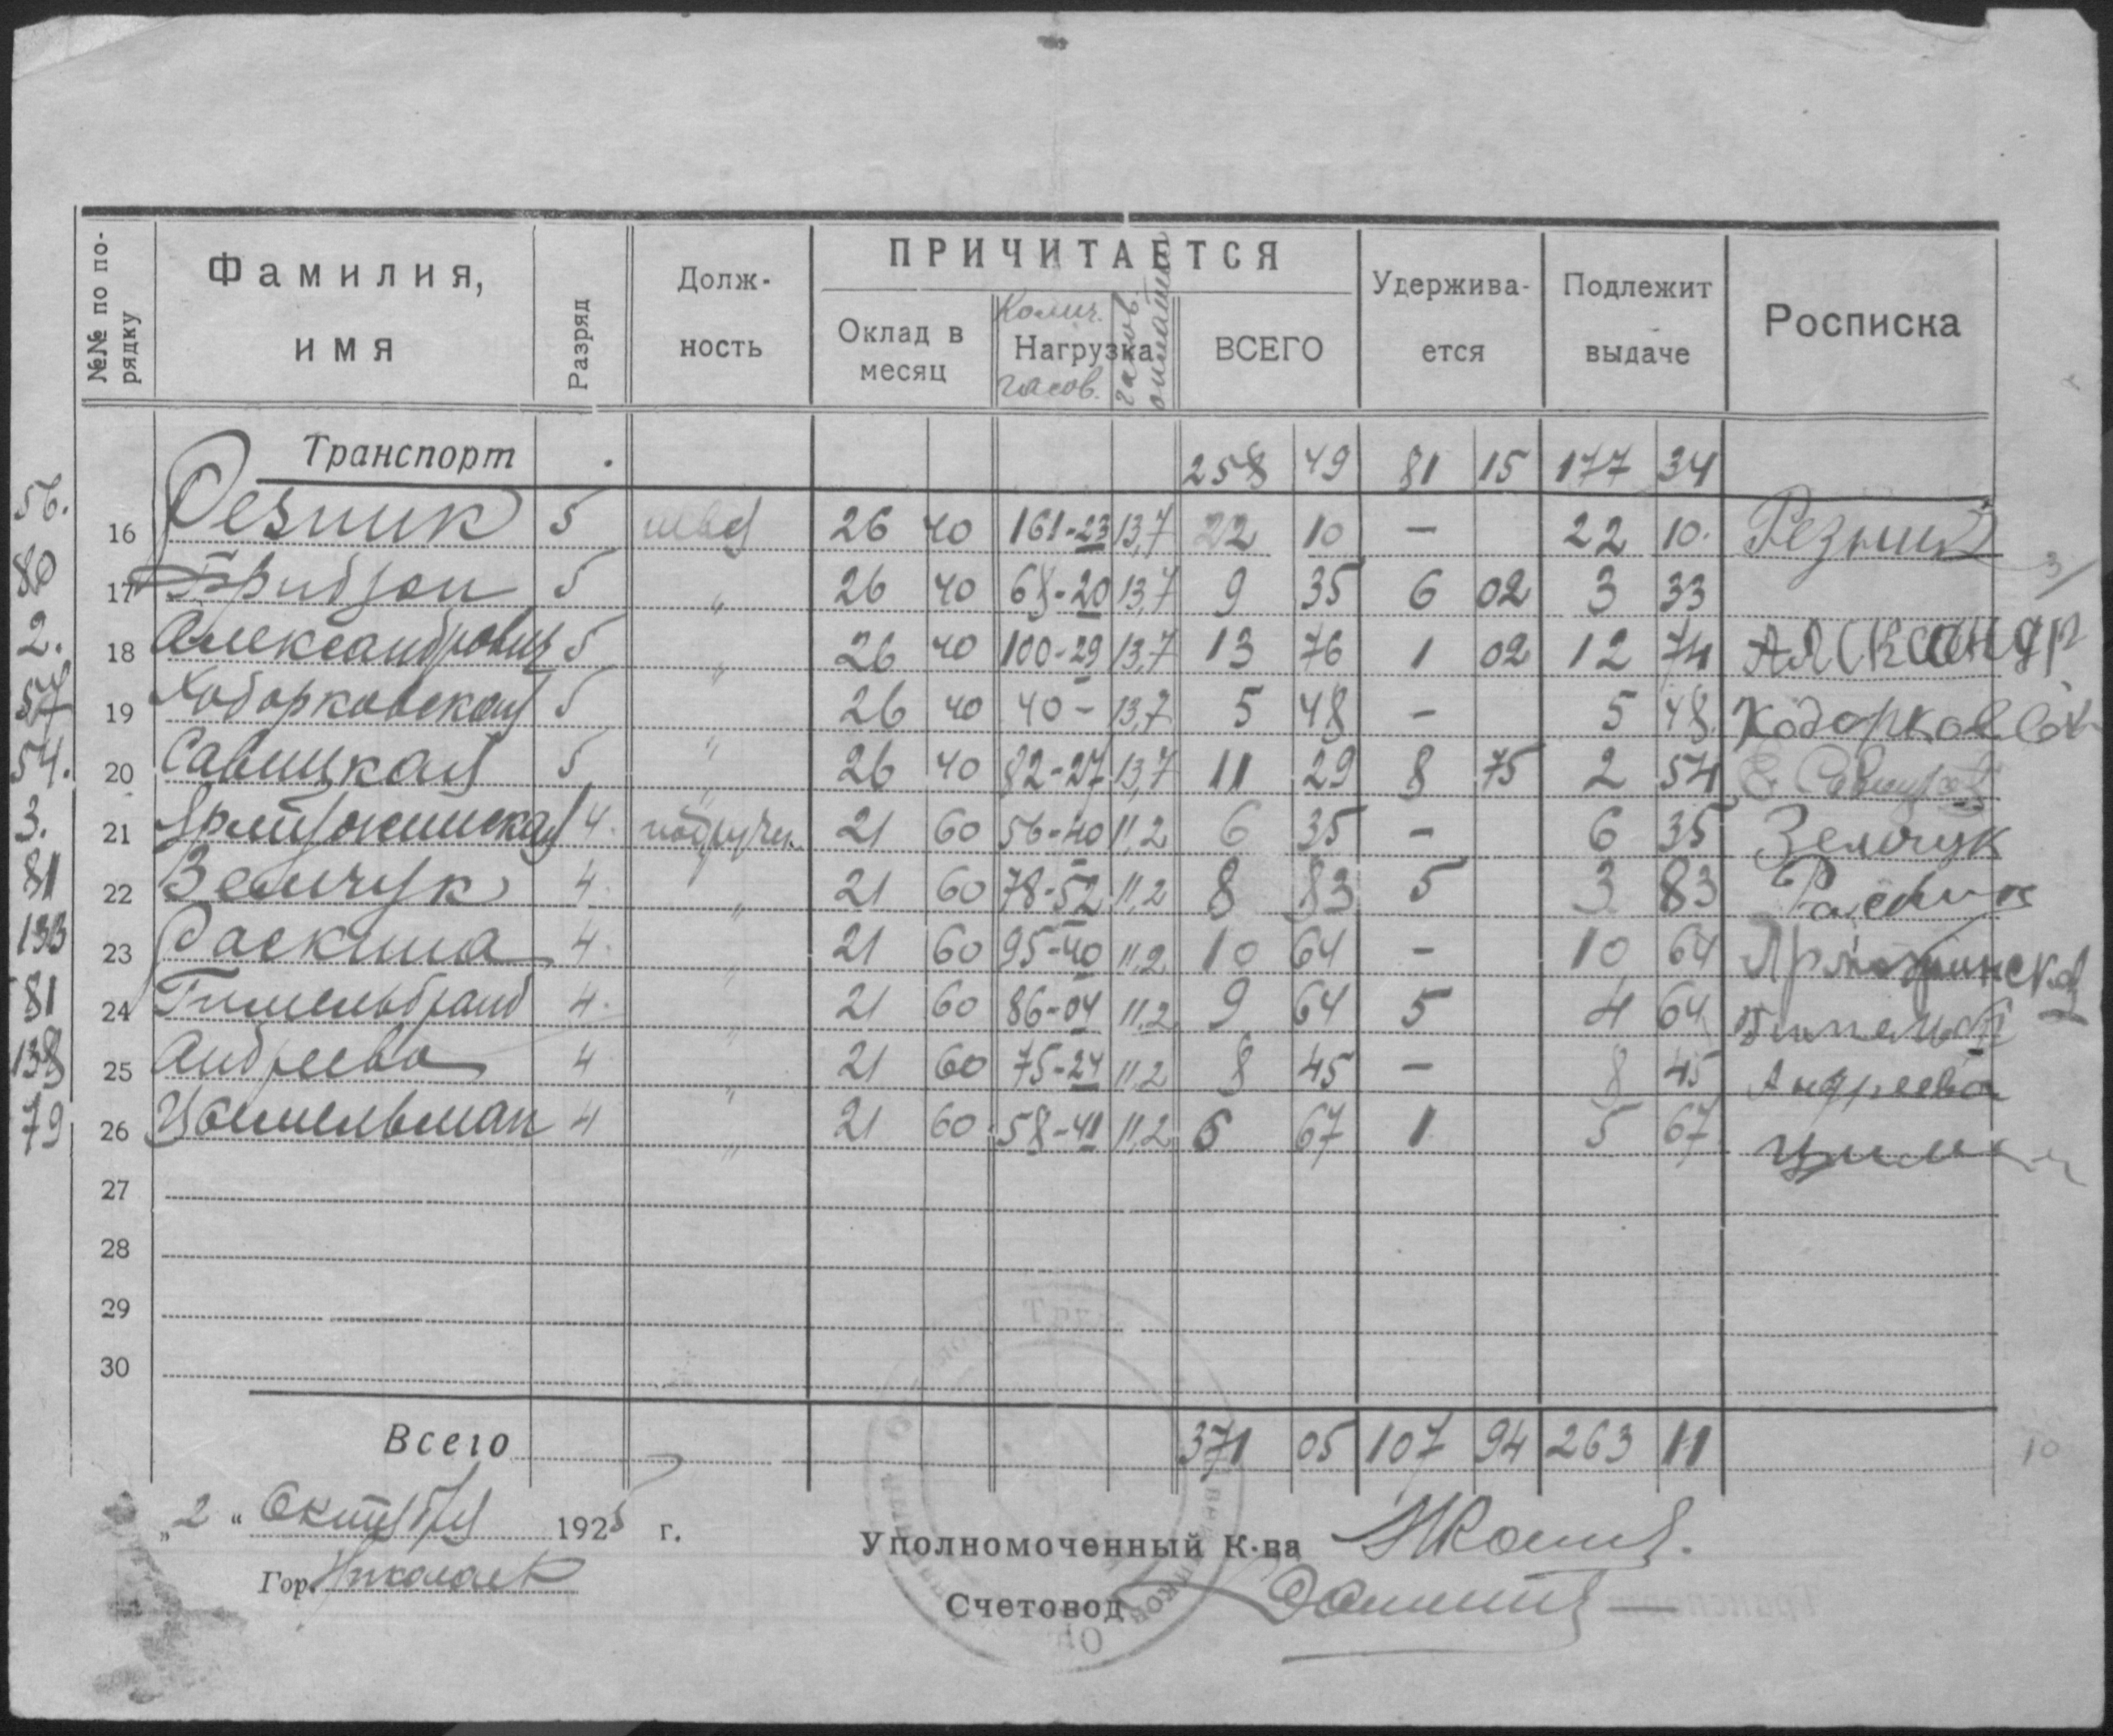 №№ по по-
рядку
Фамилия,
имя
Разряд
Долж-
ность
ПРИЧИТАЕТСЯ
Оклад в
месяц
Колич.
Нагрузка
часов.
ВСЕГО
Удержива-
ется
Подлежит
выдаче
Росписка
Транспорт 258 49 81 15 177 34
56. 16 Резник 5 швея 26 40 161-23 13,7 22 10 – 22 10. Резник
80 17 5 " 26 40 68-20 13,7 9 35 6 02 3 33
2. 18 Александрович 5 " 26 40 100-29 13,7 13 76 1 02 12 74
57 19 Ходорковская 5 " 26 40 40 – 13,7 5 48 – 5 48
54. 20 Савицкая 5 " 26 40 82-27 13,7 11 29 8 75 2 54
3. 21 4. подручн. 21 60 56-40 11,2 6 35 – 6 35 Земчук
81 22 Земчук 4. " 21 60 78-52 11,2 8 83 5 3 83
133 23 Раскина 4. " 21 60 95-40 11,2 10 64 – 10 64
81 24 Гимельбранд 4. " 21 60 86-04 11,2 9 64 5 4 64
138 25 Андреева 4 " 21 60 75-24 11,2 8 45 – 8 45 Андреева
79 26 Цимельман 4 " 21 60 58-41 11,2 6 67 1 5 67
27
28
29
30
Всего 371 05 107 94 263 11
10
„2“ Октября 1925 г.
Гор. Николаев
Уполномоченный К-ва
Счетовод